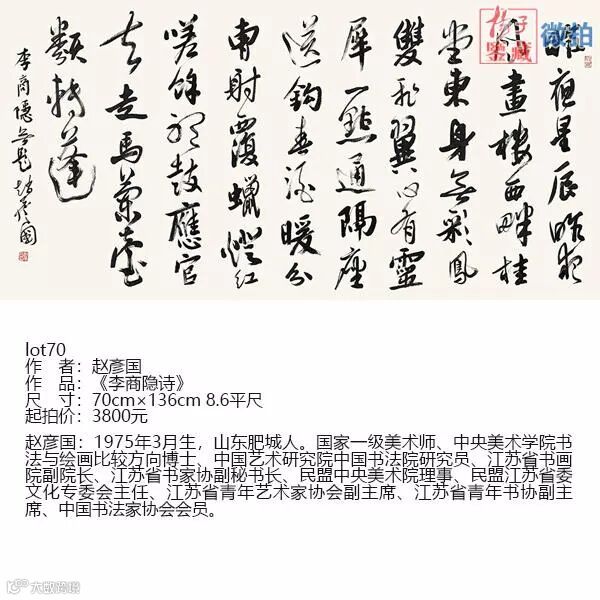 扬子鑒藏
微拍
昨夜星辰昨夜
風畫樓西畔桂
堂東身無彩鳳
雙飛翼心有靈
犀一點通隔座
送鈎春酒暖分
曹射覆蠟燈紅
嗟餘聽鼓應官
去走馬蘭臺
類轉蓬
李商隱無題 趙彥國
lot70
作 者：赵彦国
作 品：《李商隐诗》
尺 寸：70cm×136cm 8.6平尺
起拍价：3800元
赵彦国：1975年3月生，山东肥城人。国家一级美术师、中央美术学院书
法与绘画比较方向博士、中国艺术研究院中国书法院研究员、江苏省书画
院副院长、江苏省书家协副秘书长、民盟中央美术院理事、民盟江苏省委
文化专委会主任、江苏省青年艺术家协会副主席、江苏省青年书协副主
席、中国书法家协会会员。
大数跨境